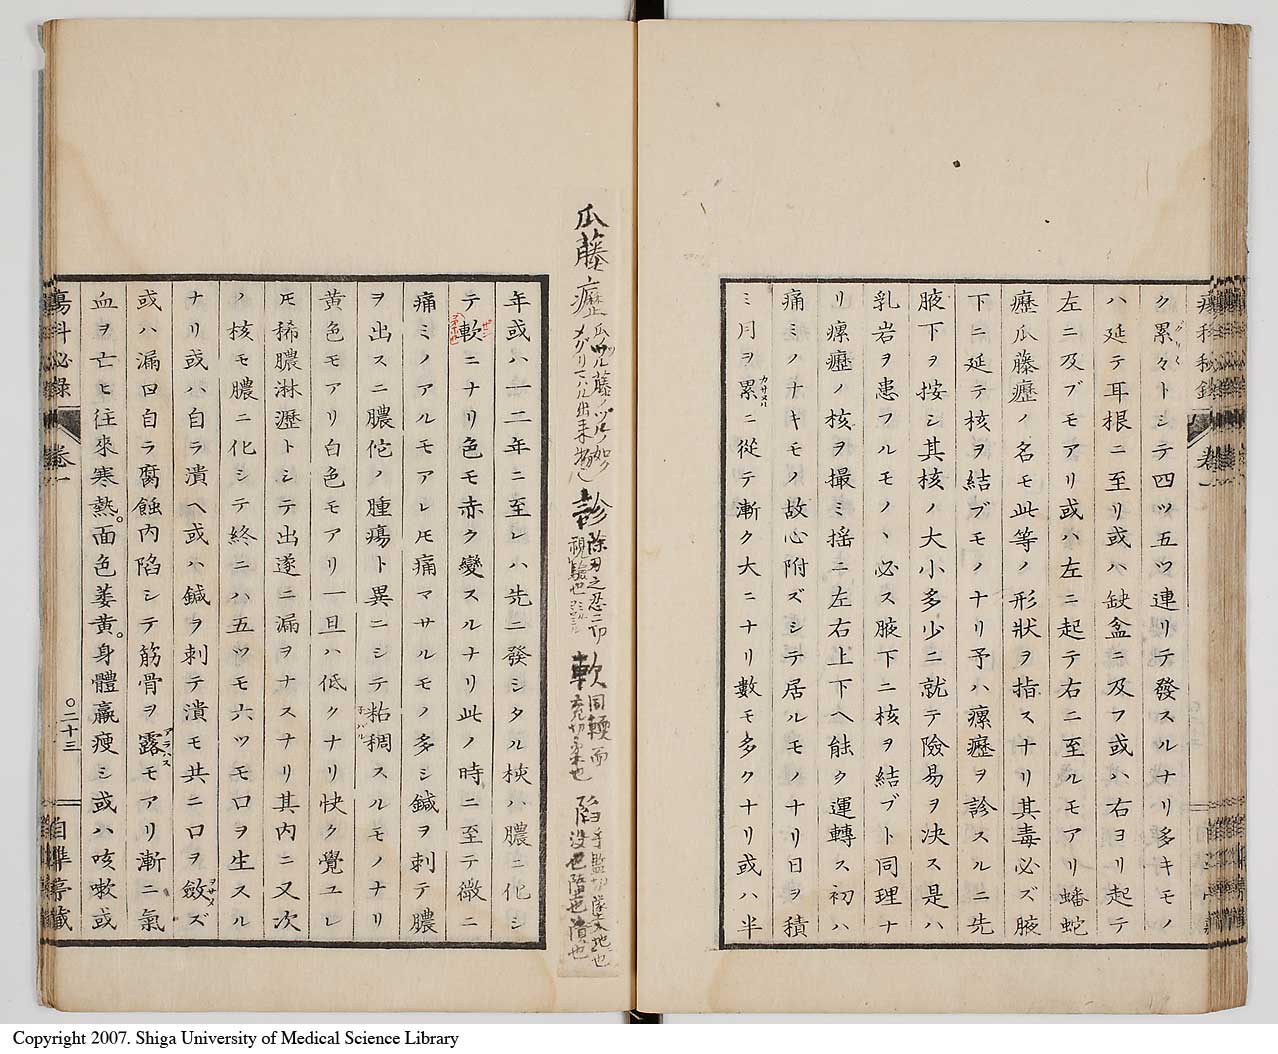 瘍科秘録 卷一
ク累々トシテ四ツ五ツ連リテ發スルナリ多キモノ
ハ延テ耳根ニ至リ或ハ缺盆ニ及フ或ハ右ヨリ起テ
左ニ及ブモアリ或ハ左ニ起テ右ニ至ルモアリ蟠蛇
癧瓜藤癧ノ名モ此等ノ形狀ヲ指スナリ其毒必ズ腋
下ニ延テ核ヲ結ブモノナリ予ハ瘰癧ヲ診スルニ先
腋下ヲ按シ其核ノ大小多少ニ就テ險易ヲ决ス是ハ
乳岩ヲ患フルモノヽ必ス腋下ニ核ヲ結ブト同理ナ
リ瘰癧ノ核ヲ撮ミ揺ニ左右上下ヘ能ク運轉ス初ハ
痛ミノナキモノ故心附ズシテ居ルモノナリ日ヲ積
ミ月ヲ累ニ從テ漸ク大ニナリ數モ多クナリ或ハ半
カサヌル
瓜藤癧
メグリニハル出来物也
診
視驗也
軟
同輭而
陷
没也
年或ハ一二年ニ至レハ先ニ發シタル核ハ膿ニ化シ
テ軟ニナリ色モ赤ク變スルナリ此ノ時ニ至テ微ニ
痛ミノアルモアレ𪜈痛マサルモノ多シ鍼ヲ刺テ膿
ヲ出スニ膿佗ノ腫瘍ト異ニシテ粘稠スルモノナリ
黄色モアリ白色モアリ一旦ハ低クナリ快ク覺ユレ
𪜈稀膿淋瀝トシテ出遂ニ漏ヲナスナリ其内ニ又次
ノ核モ膿ニ化シテ終ニハ五ツモ六ツモ口ヲ生スル
ナリ或ハ自ラ潰ヘ或ハ鍼ヲ刺テ潰モ共ニ口ヲ斂ズ
ヲサメ
或ハ漏口自ラ腐蝕内陷シテ筋骨ヲ露モアリ漸ニ氣
アラハス
血ヲ亡ヒ往來寒熱。面色萎黄。身體羸瘦シ或ハ咳嗽或
瘍科祕錄 卷一 〇二十三 自準亭藏
Copyright 2007. Shiga University of Medical Science Library